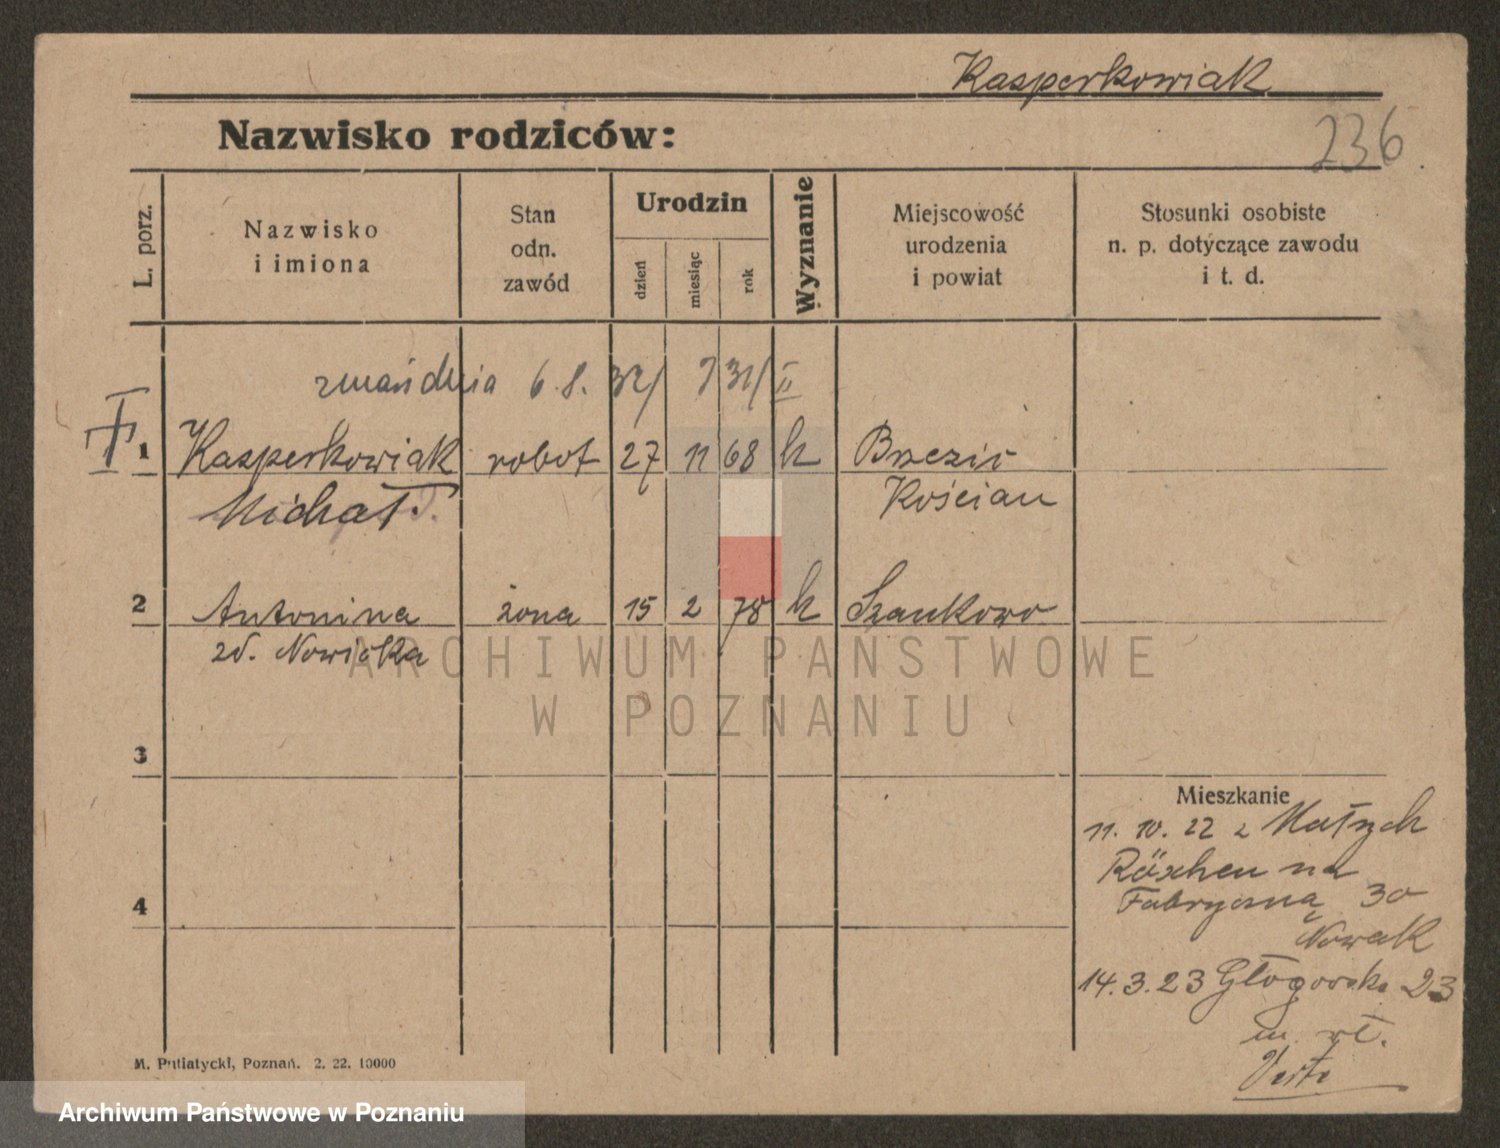 Kasperkowiak
Nazwisko rodziców:
236
L. porz.
Nazwisko
i imiona
Stan
odn.
zawód
Urodzin
dzień
miesiąc
rok
Wyznanie
Miejscowość
urodzenia
i powiat
Stosunki osobiste
n. p. dotyczące zawodu
i t. d.
6. 8. 32/ 731/ II
1 Kasperkowiak robot 27 11 68 k
Michał Kościan
2 Antonina żona 15 2 78 k Szankowo
zd. Nowicka
ARCHIWUM PAŃSTWOWE
W POZNANIU
3
Mieszkanie
11. 10. 22 z
na
4
Fabryczną 30
Nowak
14. 3. 23 Głogowska 23
m. wł.
Verte
M. Putiatycki, Poznań. 2. 22. 10000
Archiwum Państwowe w Poznaniu